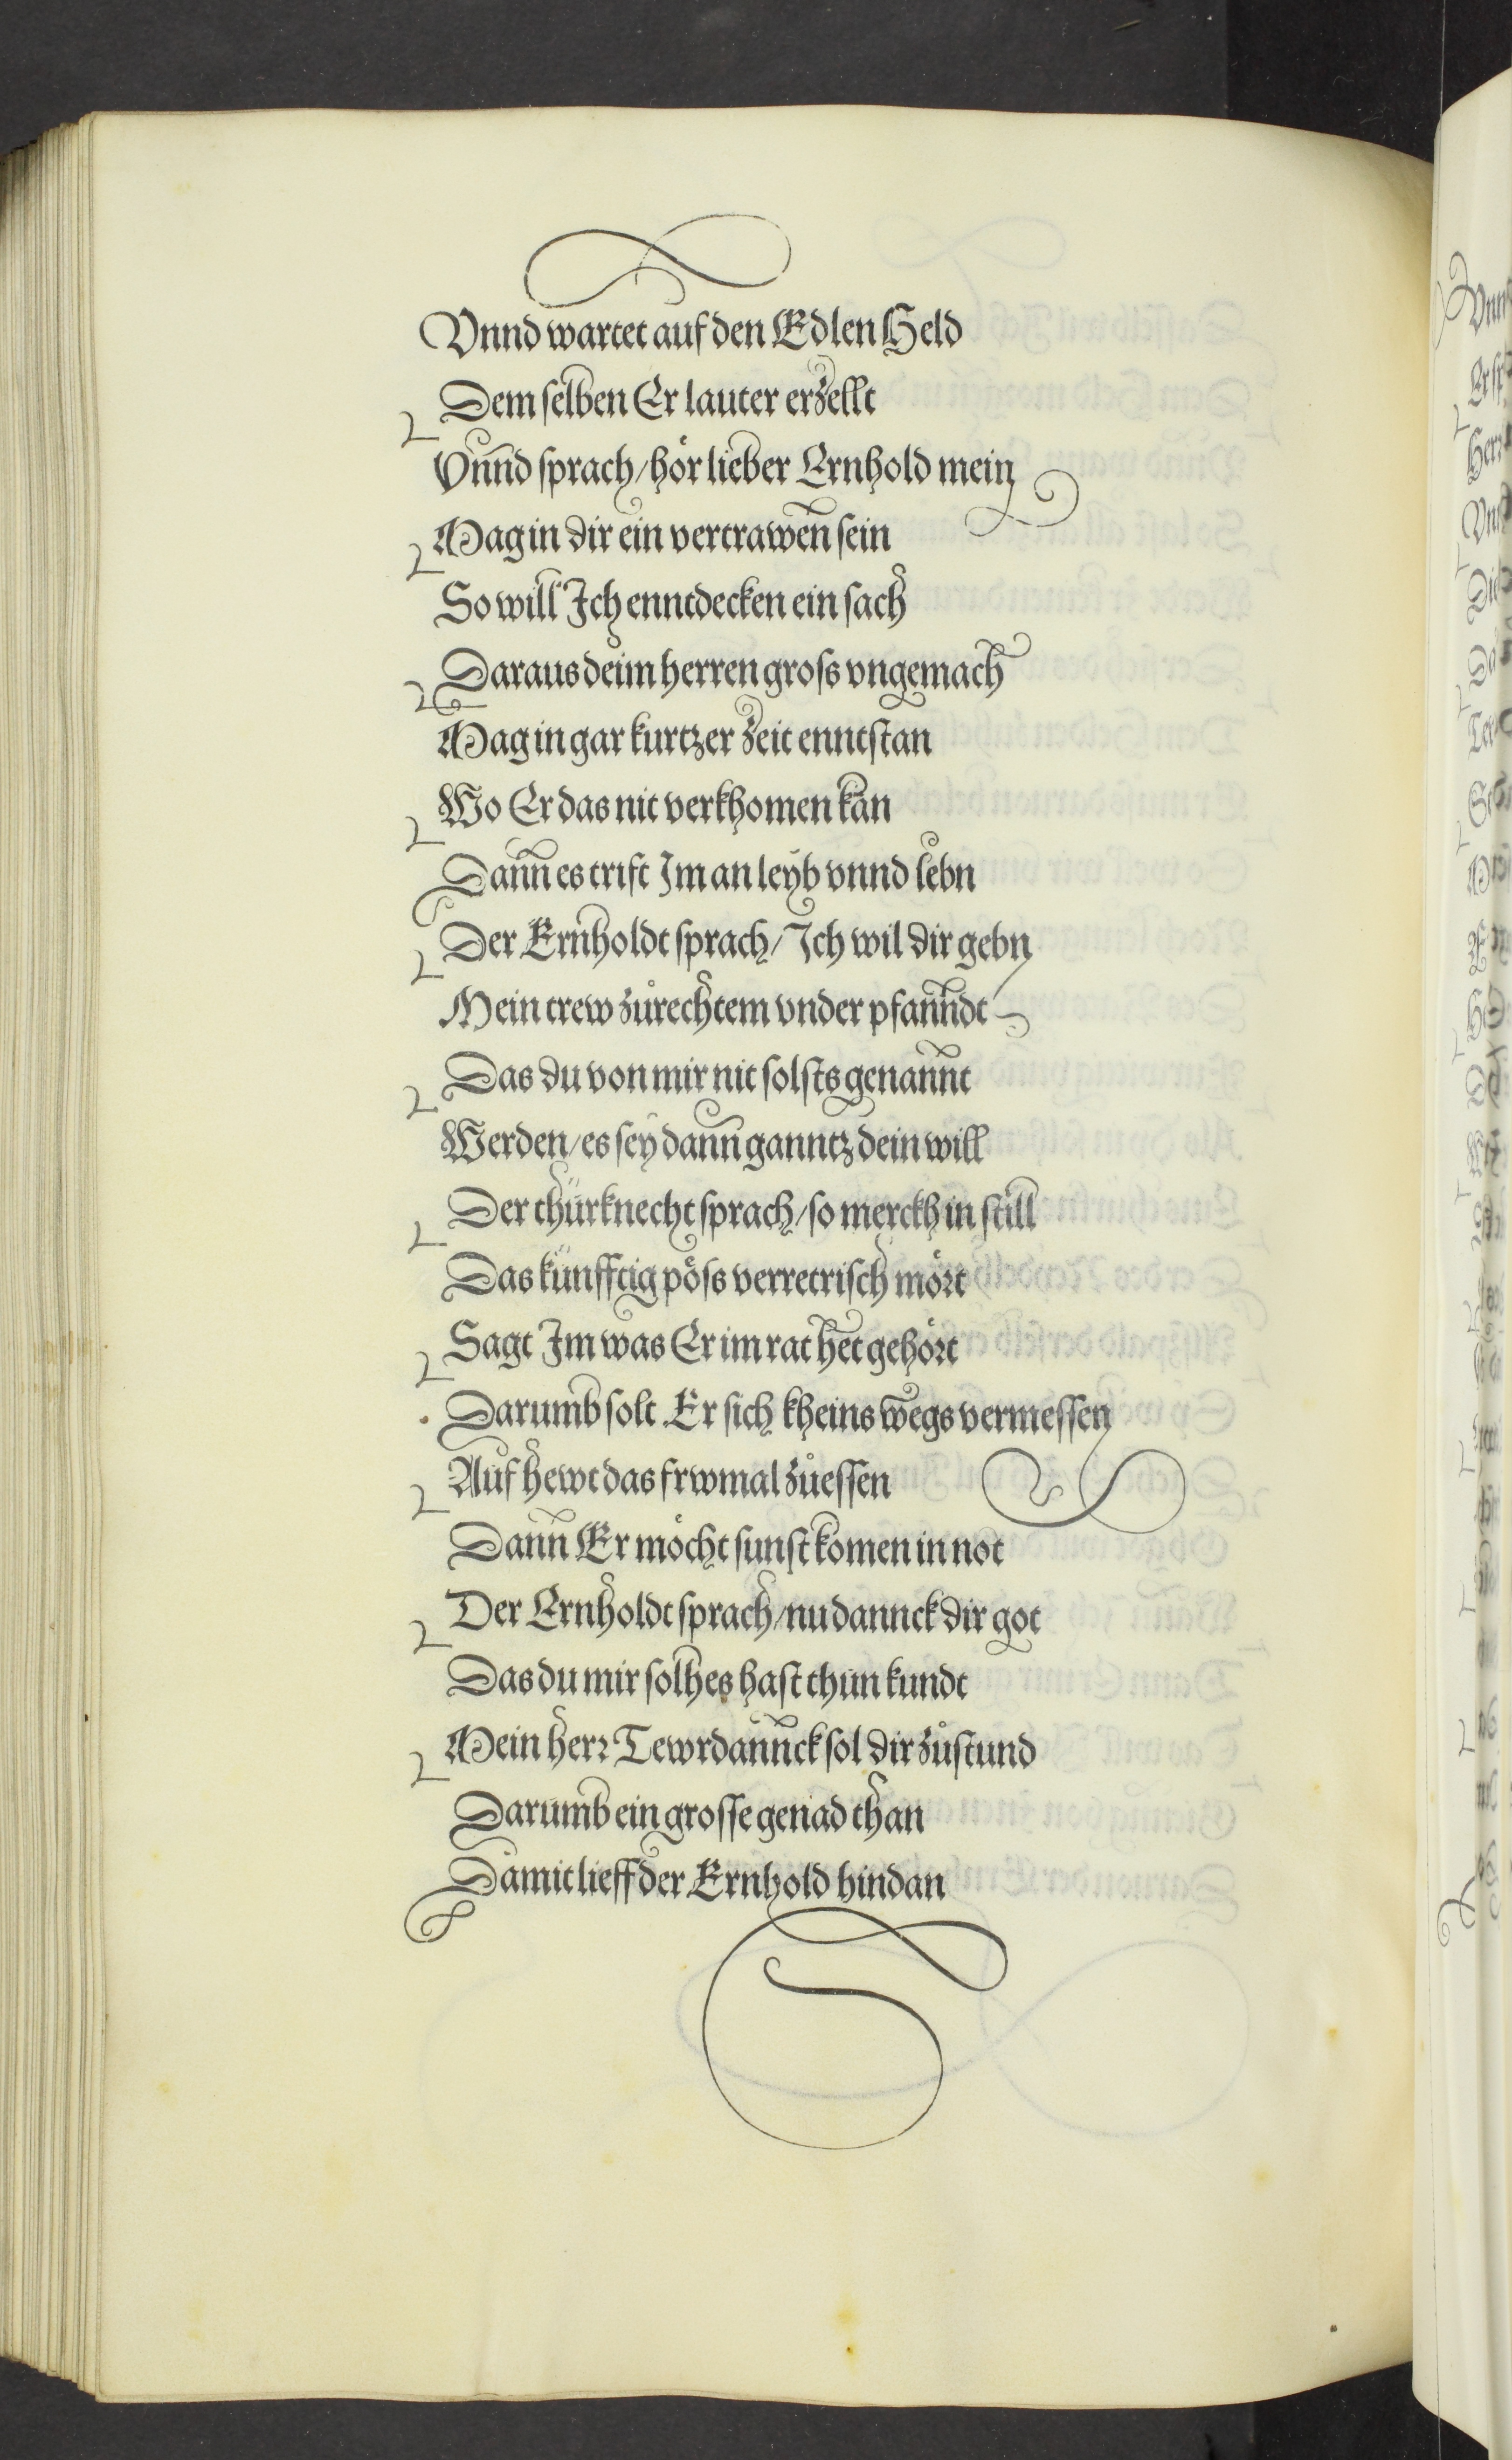 Vnnd wartet auf den Edlen Held
Dem selben Er lauter erzellt
Vnnd sprach / hör lieber Ernhold mein
Mag in dir ein vertrawen sein
So will Ich enntdecken ein sach
Daraus deim herren gross vngemach
Mag in gar kurtzer zeit enntstan
Wo Er das nit verkhomen kan
Dann es trift Im an leyb vnnd lebn
Der Ernholdt sprach / Ich wil dir gebn
Mein trew zůrechtem vnder pfanndt
Das du von mir nit solsts genannt
Werden / es sey dann ganntz dein will
Der thürknecht sprach / so merckh in still
Das künfftig pöss verretrisch mört
Sagt Im was Er im rat het gehört
Darumb solt Er sich kheins wegs vermessen
Auf hewt das frwmal zůessen
Dann Er möcht sunst komen in not
Der Ernholdt sprach / nu dannck dir got
Das du mir solhes hast thun kundt
Mein herr Tewrdannck sol dir zůstund
Darumb ein grosse genad than
Damit lieff der Ernhold hindan